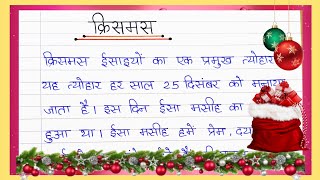 क्रिसमस
क्रिसमस ईसाइयों का एक प्रमुख त्योहार
यह त्योहार हर साल 25 दिसंबर को
जाता है। इस दिन ईसा मसीह का
हुआ था। ईसा मसीह हमें प्रेम, दया